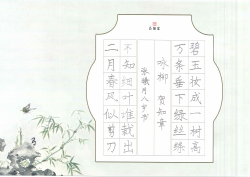 碧玉妆成一树高
万条垂下绿丝绦
咏柳 贺知章
不知细叶谁裁出
二月春风似剪刀